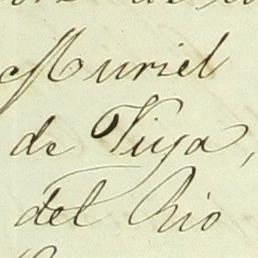 Muriel
de Viya,
del Rio